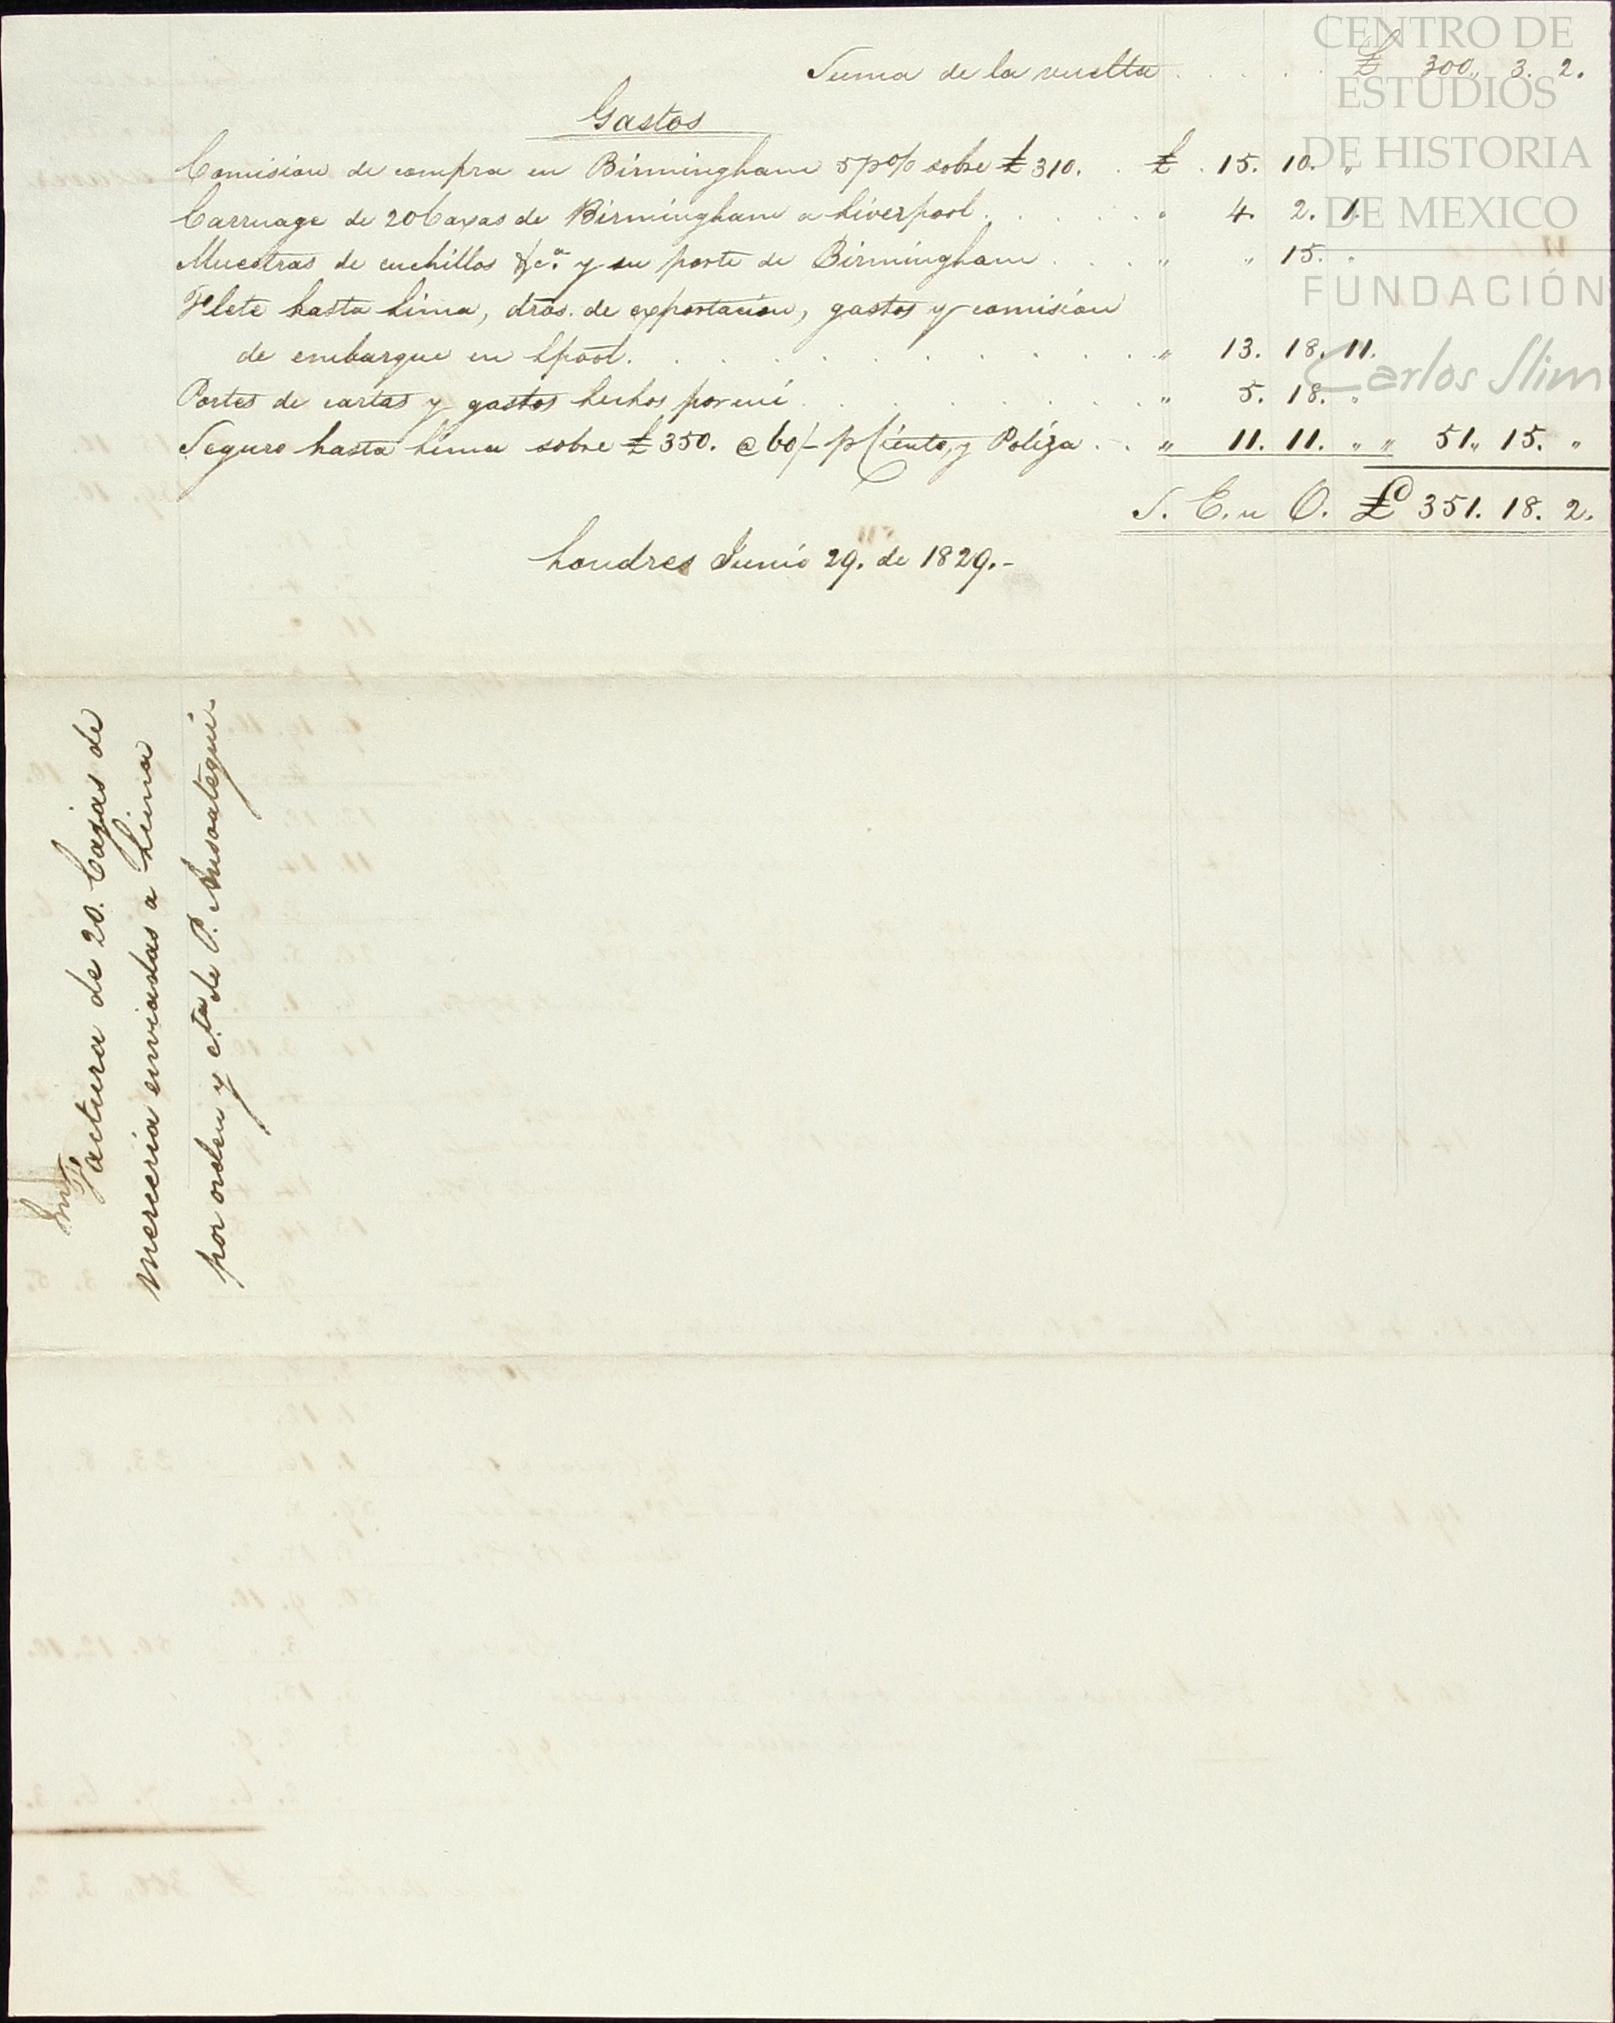 Suma de la vuelta . . . . £ 300,, 3. 2.
Gastos
Comision de compra en Birmingham 5 p% sobre £310. . £ . 15. 10. "
Carruage de 20 Caxas de Birmingham a Liverpool. . . . . . " 4. 2. 1.
Muestras de cuchillos &c.ª y su porte de Birmingham . . . " " 15. "
Flete hasta Lima, dros. de exportacion, gastos y comision
de embarque en Lpool. . . . . . . . . . . " 13. 18. 11.
Portes de cartas y gastos hechos por mi . . . . . . . . " 5. 18. "
Seguro hasta Lima sobre £350. @ 60/- p Ciento, y Poliza . . " 11. 11. " " 51,, 15. "
S. E. u O. £ 351. 18. 2.
Londres Junio 29. de 1829.-
Factura de 20. Caxas de
merceria enviadas a Lima
por orden y c.ta de P. Ansoategui.
CENTRO DE
ESTUDIOS
DE HISTORIA
DE MEXICO
FUNDACIÓN
Carlos Slim